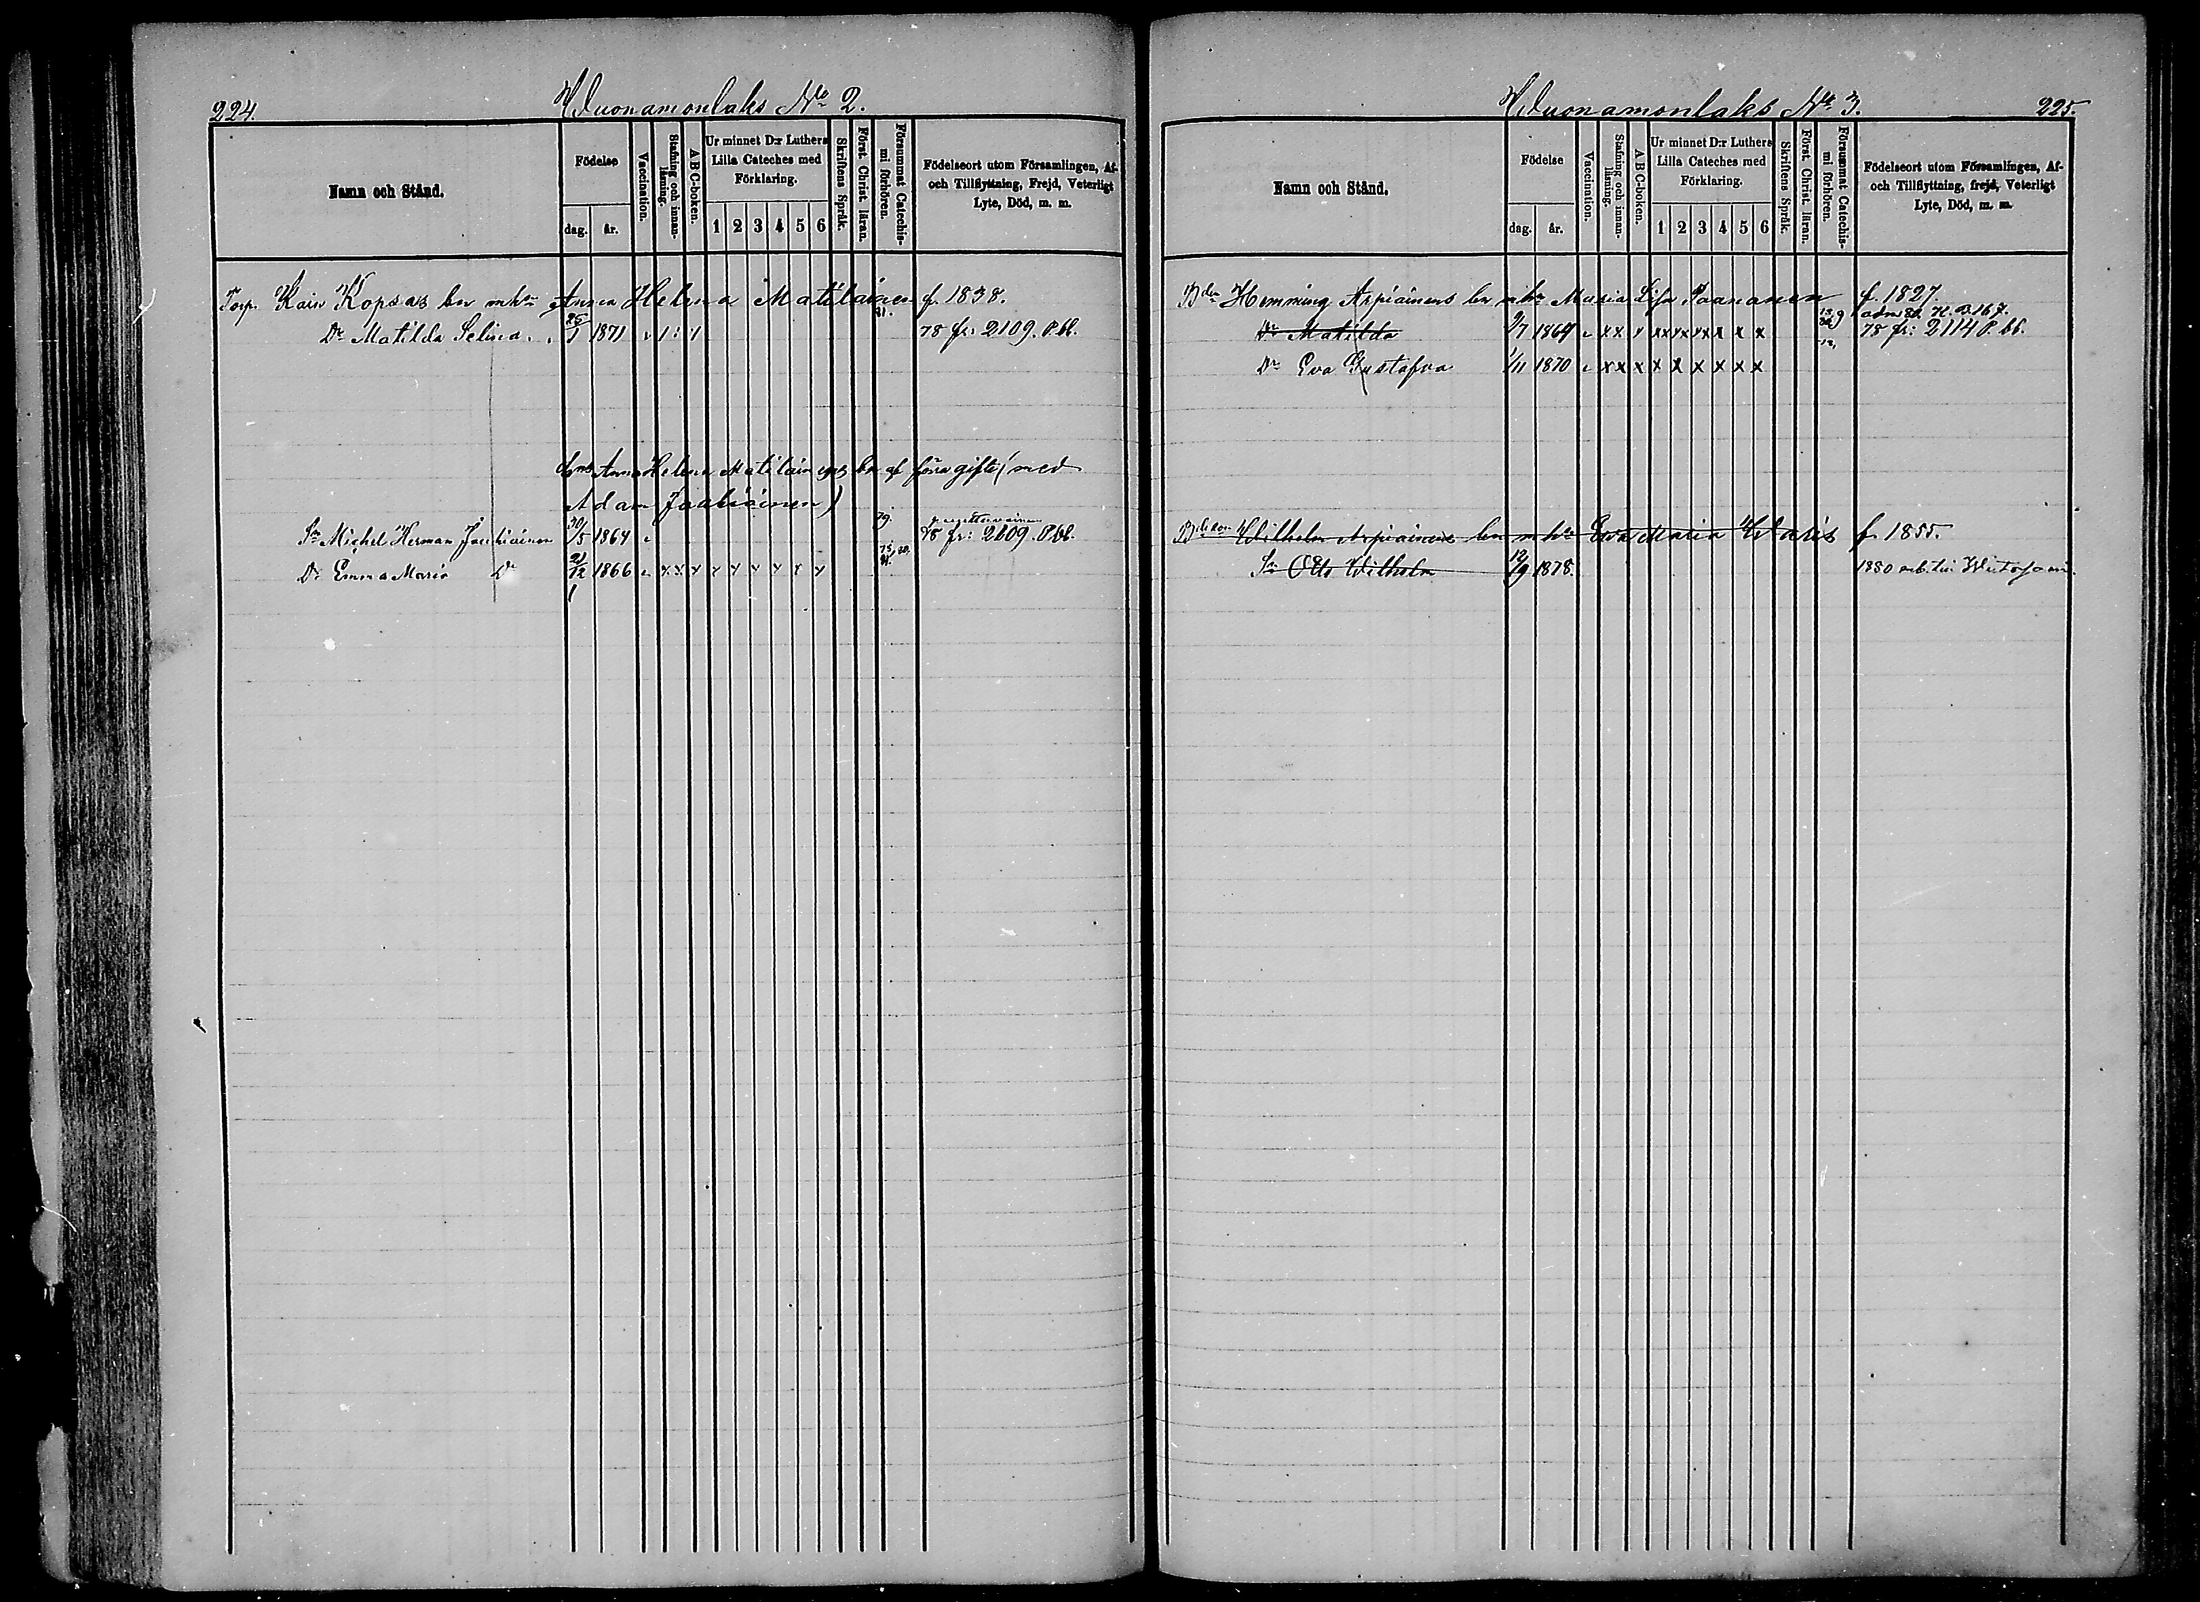 224.
Wuonamonlaks No 2.
Namn och Stånd.
Födelse
dag.
år.
Vaccination.
Stafning och innanläsning.
A B C-boken.
Ur minnet D:r Luthers
Lilla Cateches med
Förklaring.
1 2 3 4 5 6
Skriftens Språk.
Först. Christ. läran.
Försummat Catechismi förhören.
Födelseort utom Församlingen, Af-
och Tillflyttning, Frejd, Veterligt
Lyte, Död, m. m.
Torp. Kopsas bn m hu Anna Helena Matilainen f. 1838.
Dr Matilda Selina 25/1 1871 81. 78 fr: 2109. P.bl.
Anna Helena Matilainens bn af förra gifte (med
Adam Jaakiainen)
Sn Michel Herman Jaakiainen 30/5 1864 79. 78 fr: 2609. P.bl.
Dr Emma Maria Dr 21/12 1866 x x x x x x x x x
Wuonamonlaks No 3.
225.
Namn och Stånd.
Födelse
dag.
år.
Vaccination.
Stafning och innanläsning.
A B C-boken.
Ur minnet D:r Luthers
Lilla Cateches med
Förklaring.
1 2 3 4 5 6
Skriftens Språk.
Först. Christ. läran.
Försummat Catechismi förhören.
Födelseort utom Församlingen, Af-
och Tillflyttning, frejd, Veterligt
Lyte, Död, m. m.
Bden Hemming Arpiainens bn m hu Maria Lisa Paananen f. 1827.
adm 80. H.B. 167.
Dr Matilda 9/7 1864 x x x x x x x x x 78 fr: 2114 P.bl.
Dr Eva Gustafva 1/11 1870 x x x x x x x x x
Wilhelm Arpiainens bn m hu Eva Maria Waris f. 1855.
Sn Otto Wilhelm 12/9 1878. 1880